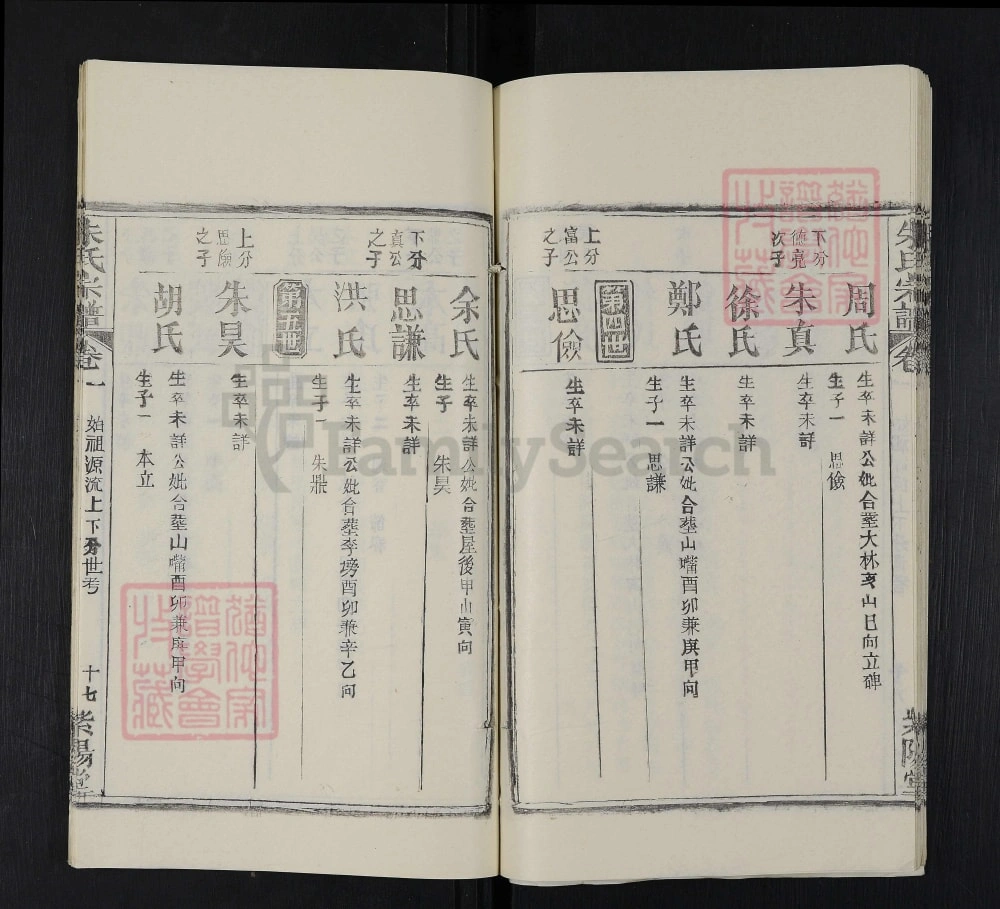 朱氏宗譜
卷
紫陽堂
周氏
生卒未詳公妣合塟大林亥山巳向立碑
生子一 思儉
下分德亮次子
朱真
生卒未詳
徐氏
生卒未詳
鄭氏
生卒未詳公妣合塟山嘴酉卯兼庚甲向
生子一 思謙
第四世
上分富公之子
思儉
生卒未詳
余氏
生卒未詳公妣合塟屋後甲山寅向
生子 朱昊
下分真公之子
思謙
生卒未詳
洪氏
生卒未詳公妣合塟李塝酉卯兼辛乙向
生子一 朱鼎
第五世
上分思儉之子
朱昊
生卒未詳
胡氏
生卒未詳公妣合塟山嘴酉卯兼庚甲向
生子一 本立
朱氏宗譜
卷一
始祖源流上下分世考
十七
紫陽堂
FamilySearch